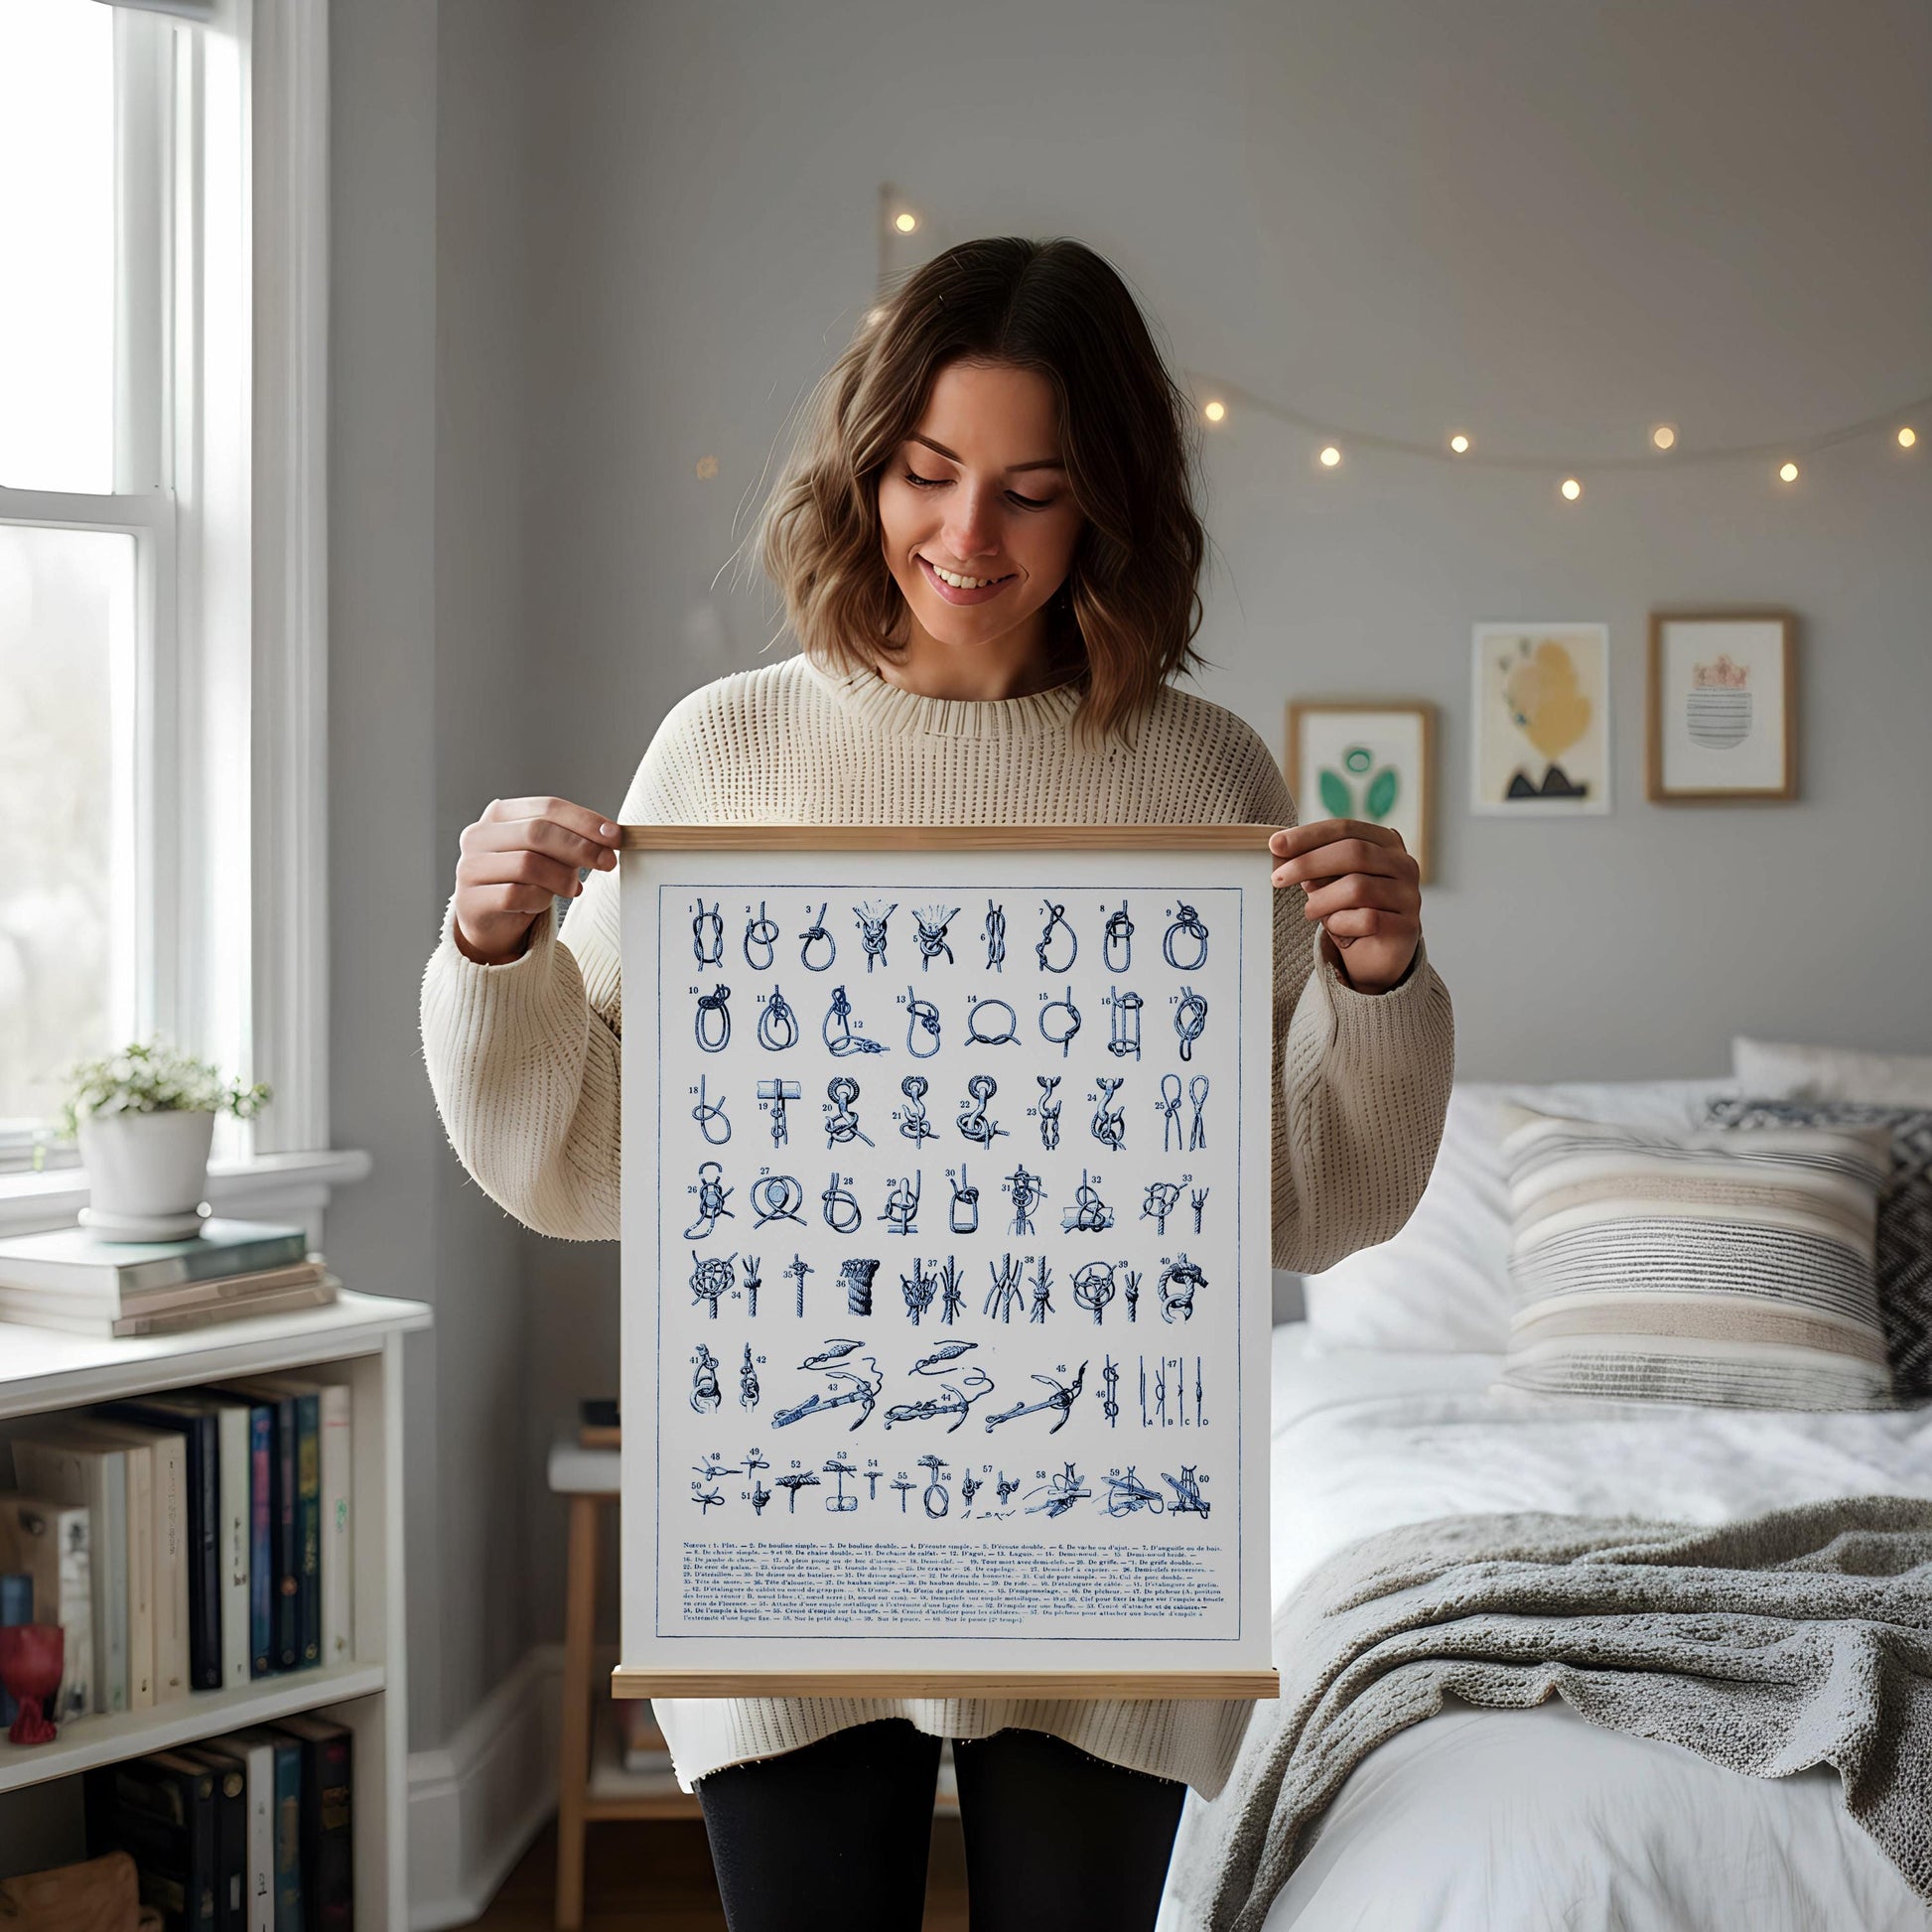 1 2 3 4 5 6 7 8 9
10 11 12 13 14 15 16 17
18 19 20 21 22 23 24 25
26 27 28 29 30 31 32 33
34 35 36 37 38 39 40
41 42 43 44 45 46 47
A B C D
48 49 50 51 52 53 54 55 56 57 58 59 60
Nœuds : 1. Plat. — 2. De bouline simple. — 3. De bouline double. — 4. D'écoute simple. — 5. D'écoute double. — 6. De vache ou d'ajut. — 7. D'anguille ou de bois.
— 8. De chaise simple. — 9 et 10. De chaise double. — 11. De chaise de calfat. — 12. D'agui. — 13. Laguis. — 14. Demi-nœud. — 15. Demi-nœud bridé. —
16. De jambe de chien. — 17. A plein poing ou de bec d'oiseau. — 18. Demi-clef. — 19. Tour mort avec demi-clefs. — 20. De griffe. — 21. De griffe double. —
22. De croc de palan. — 23. Gueule de raie. — 24. Gueule de loup. — 25. De cravate. — 26. De capelage. — 27. Demi-clef à capeler. — 28. Demi-clefs renversées. —
29. D'étrésillon. — 30. De drisse ou de batelier. — 31. De drisse anglaise. — 32. De drisse de bonnette. — 33. Cul de porc simple. — 34. Cul de porc double. —
35. Tête de more. — 36. Tête d'alouette. — 37. De hauban simple. — 38. De hauban double. — 39. De ride. — 40. D'étalingure de câble. — 41. D'étalingure de grelin.
— 42. D'étalingure de câblot ou nœud de grappin. — 43. D'orin. — 44. D'orin de petite ancre. — 45. D'empennelage. — 46. De pêcheur. — 47. De pêcheur (A, position
des brins à réunir ; B, nœud libre ; C, nœud serré ; D, nœud sur crin). — 48. Demi-clefs sur empile métallique. — 49 et 50. Clef pour fixer la ligne sur l'empile à boucle
en crin de Florence. — 51. Attache d'une empile métallique à l'extrémité d'une ligne fixe. — 52. D'empile sur une bauffe. — 53. Croisé d'attache et de cablière. —
54. De l'empile à boucle. — 55. Croisé d'empile sur la bauffe. — 56. Croisé d'artificier pour les cablières. — 57. Du pêcheur pour attacher une boucle d'empile à
l'extrémité d'une ligne fixe. — 58. Sur le petit doigt. — 59. Sur le pouce. — 60. Sur le pouce (2e temps).